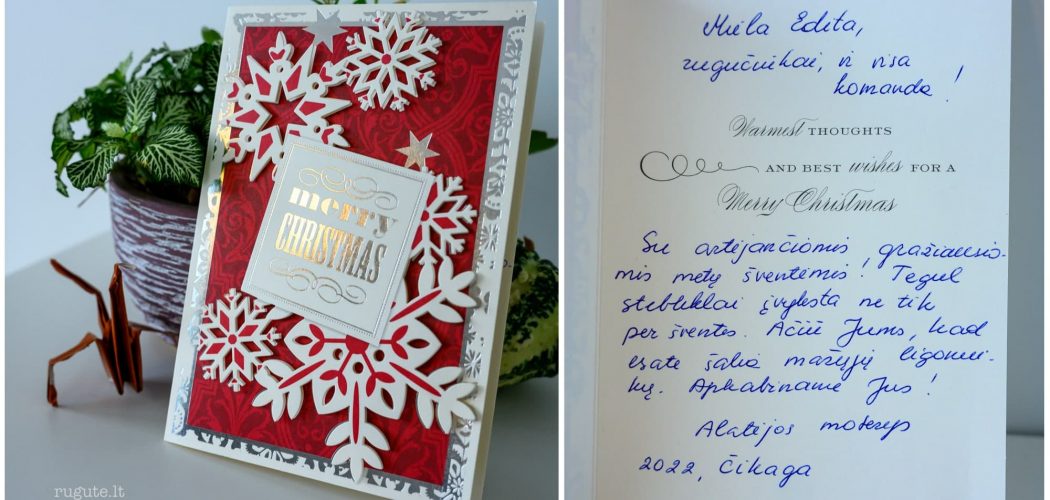 merry
CHRISTMAS
rugute.lt
Miela Edita,
rugučiukai, ir visa
komanda!
Warmest THOUGHTS
AND BEST wishes FOR A
Merry Christmas
Su artėjančiomis, gražiausio-
mis metų šventėmis! Tegul
stebuklai įvyksta ne tik
per šventes. Ačiū Jums, kad
esate šalia mažųjų ligoniu-
kų. Apkabiname Jus!
Alatėjos moterys
2022, Čikaga